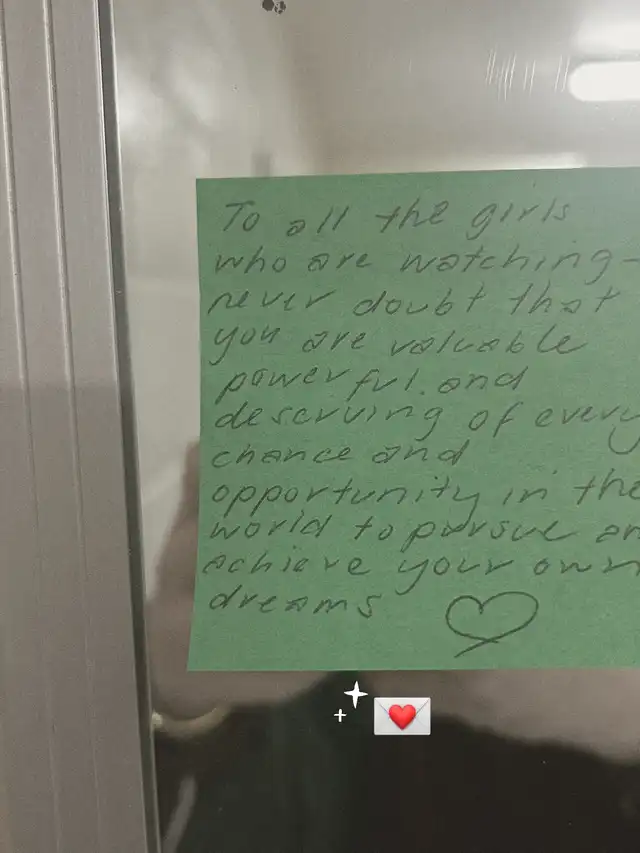 To all the girls
who are watching-
never doubt that
you are valuable
powerful.and
deserving of every
chance and
opportunity in the
world to pursue an
achieve your own
dreams